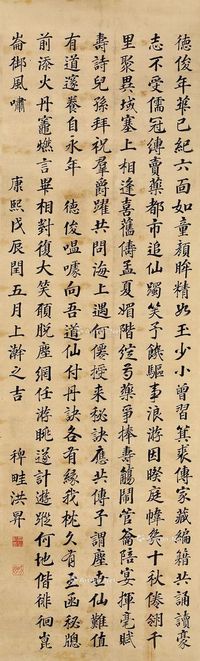 德俊年華已紀六面如童顏眸精如玉少小曾習箕裘傳家藏編籍共誦讀豪
志不受儒冠縛賣藥都市追仙躅笑予餓驅事浪游因暌庭幃矣十秋倦翎千
里聚異域塞上相逢喜舊儔孟夏媚階從芍藥爭捧壽觴閒管籥陪宴揮毫賦
壽詩兒孫拜祝羣爵躍共問海上遇何僊授来秘訣應共傳子謂塵世仙難值
有道邃養自永年 德俊嗢噱向吾道仙付丹訣各有緣我枕久有玉函秘牕
前添火丹竈燃言畢相對復大笑願脫塵網任游眺遂計遊蹤何地偕徘徊崑
崙御風嘯
康熙戊辰閏五月上澣之吉
稗畦洪昇